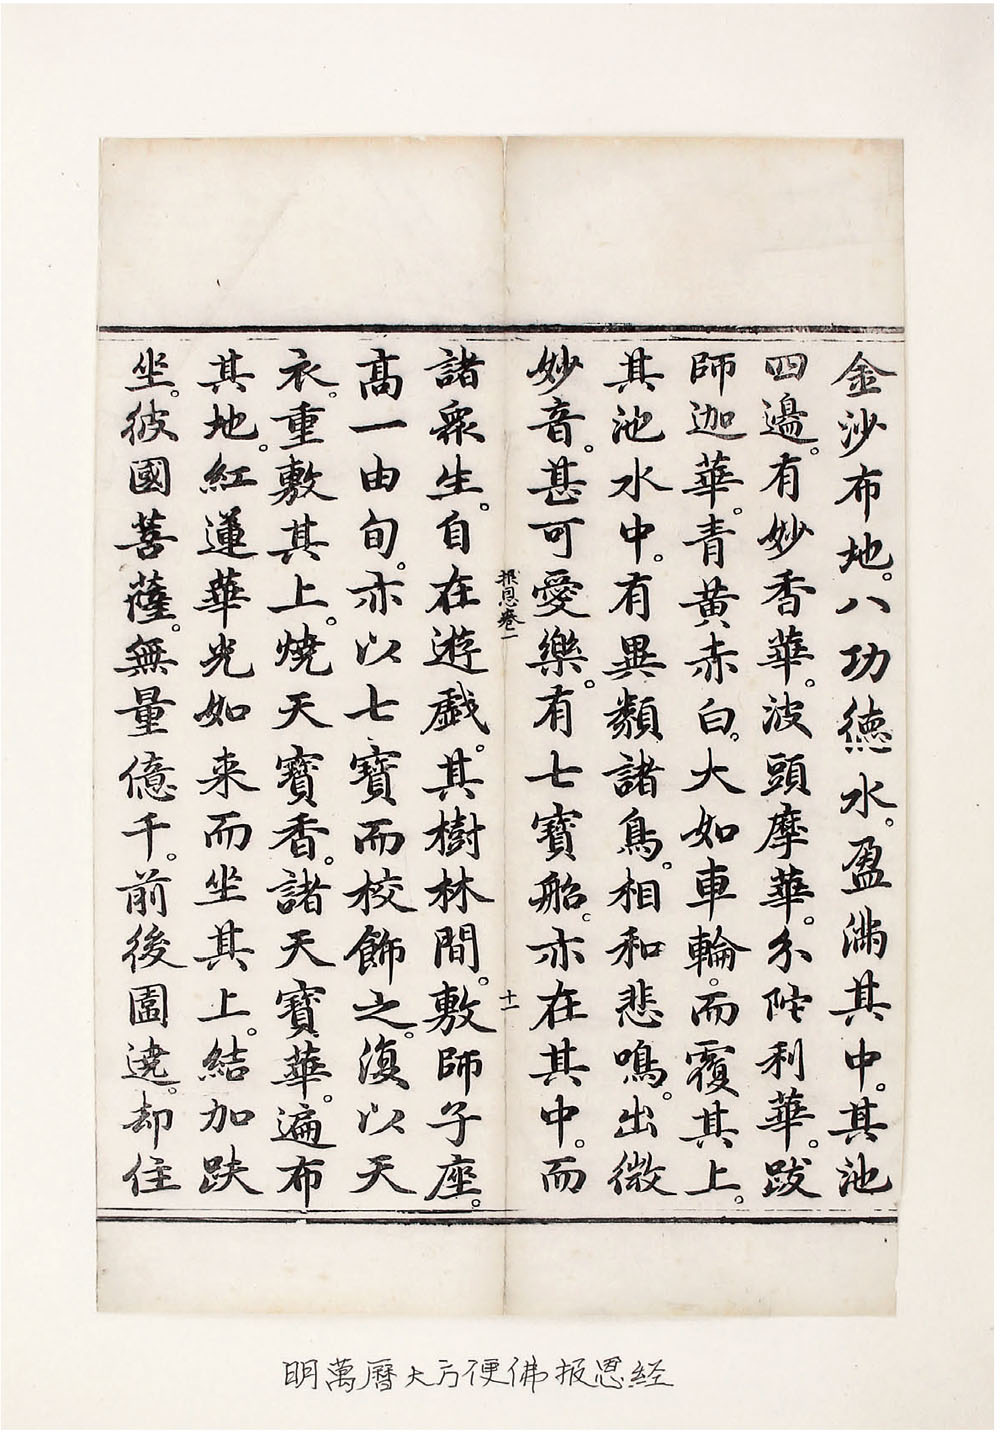 金沙布地。八功德水。盈滿其中。其池
四邊。有妙香華。波頭摩華。分陀利華。跋
師迦華。青黃赤白。大如車輪。而覆其上。
其池水中。有異類諸鳥。相和悲鳴。出微
妙音。甚可愛樂。有七寶船。亦在其中。而
報恩卷一
十一
諸衆生。自在遊戲。其樹林間。敷師子座。
高一由旬。亦以七寶而校飾之。復以天
衣。重敷其上。燒天寶香。諸天寶華。遍布
其地。紅蓮華光如来而坐其上。結加趺
坐。彼國菩薩。無量億千。前後圍遶。却住
明萬曆大方便佛报恩经